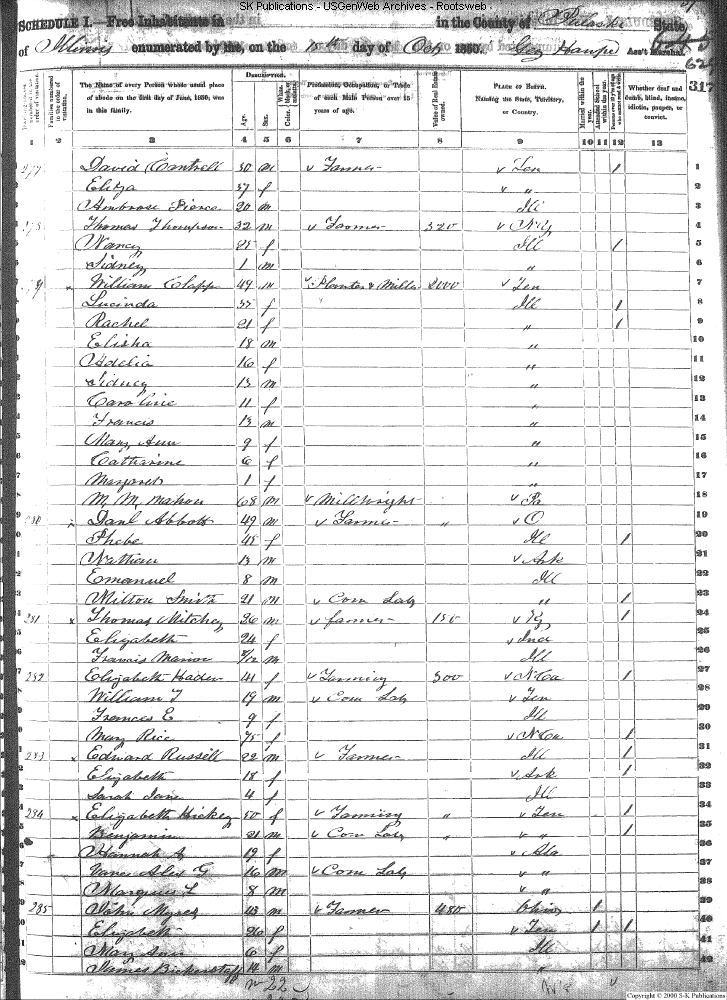 SK Publications - USGenWeb Archives - Rootsweb
SCHEDULE I. - Free Inhabitants in in the County of Pulaski State
of Illinois enumerated by me, on the day of Oct 1850. Ass't Marshal.
317
DESCRIPTION.
The Name of every Person whose usual place of abode on the first day of June, 1850, was in this family.
Age.
Sex.
Profession, Occupation, or Trade of each Male Person over 15 years of age.
Value of Real Estate owned.
PLACE OF BIRTH. Naming the State, Territory, or Country.
Married within the year.
Attended School within the year.
Whether deaf and dumb, blind, insane, idiotic, pauper, or convict.
1 2 3 4 5 6 7 8 9 10 11 12 13
277 David Cantrell 50 m v Farmer v Ten / 1
Eliza 37 f v " 2
Ambrose Pierce 20 m Ill 3
278 Thomas Thompson 32 m v Farmer 320 v N.Y 4
Nancy f Ill / 5
Sidney 1 m " 6
279 William Clapp 49 m v Planter & Miller 2000 v Ten 7
Lucinda f Ill / 8
Rachel 21 f " / 9
Elisha 18 m " 10
Adelia 16 f " 11
Sidney 13 m " 12
Caroline 11 f " 13
Francis 13 m " 14
Mary Ann 9 f " 15
Catharine 6 f " 16
Margaret 1 f " 17
M. M. Mahon 68 m v Millwright v Pa 18
280 Danl Abbott 49 m v Farmer " v O 19
Phebe 45 f Ill / 20
13 m v Ark 21
Emanuel 8 m Ill 22
Milton Smith 21 m v Com Lab " / 23
281 Thomas Mitchey 26 m v farmer 150 v Ky / 24
Elizabeth 24 f v Ind 25
Francis Marion m Ill 26
282 Elizabeth Haden 41 f v Farming 300 v N.Ca / 27
William T 19 m v Com Lab v Ten 28
Frances E 9 f Ill 29
Mary Rice 75 f v N.Ca / 30
283 Edward Russell 22 m v Farmer Ill / 31
Elizabeth 18 f v Ark / 32
Sarah Jane 4 f Ill 33
284 Elizabeth Hickey 50 f v Farming " v Ten / 34
Benjamin 21 m v Com Lab " v " / 35
Hannah A 19 f v Ala 36
Vance Alex G 16 m v Com Lab v " 37
Marquis L 8 m v " 38
285 John Myres 43 m v Farmer 480 Ohio / 39
Elizabeth 26 f v Ten / / 40
Mary Ann 6 f Ill 41
James Bickerstaff 14 m " 42
22
Copyright © 2000 S-K Publications